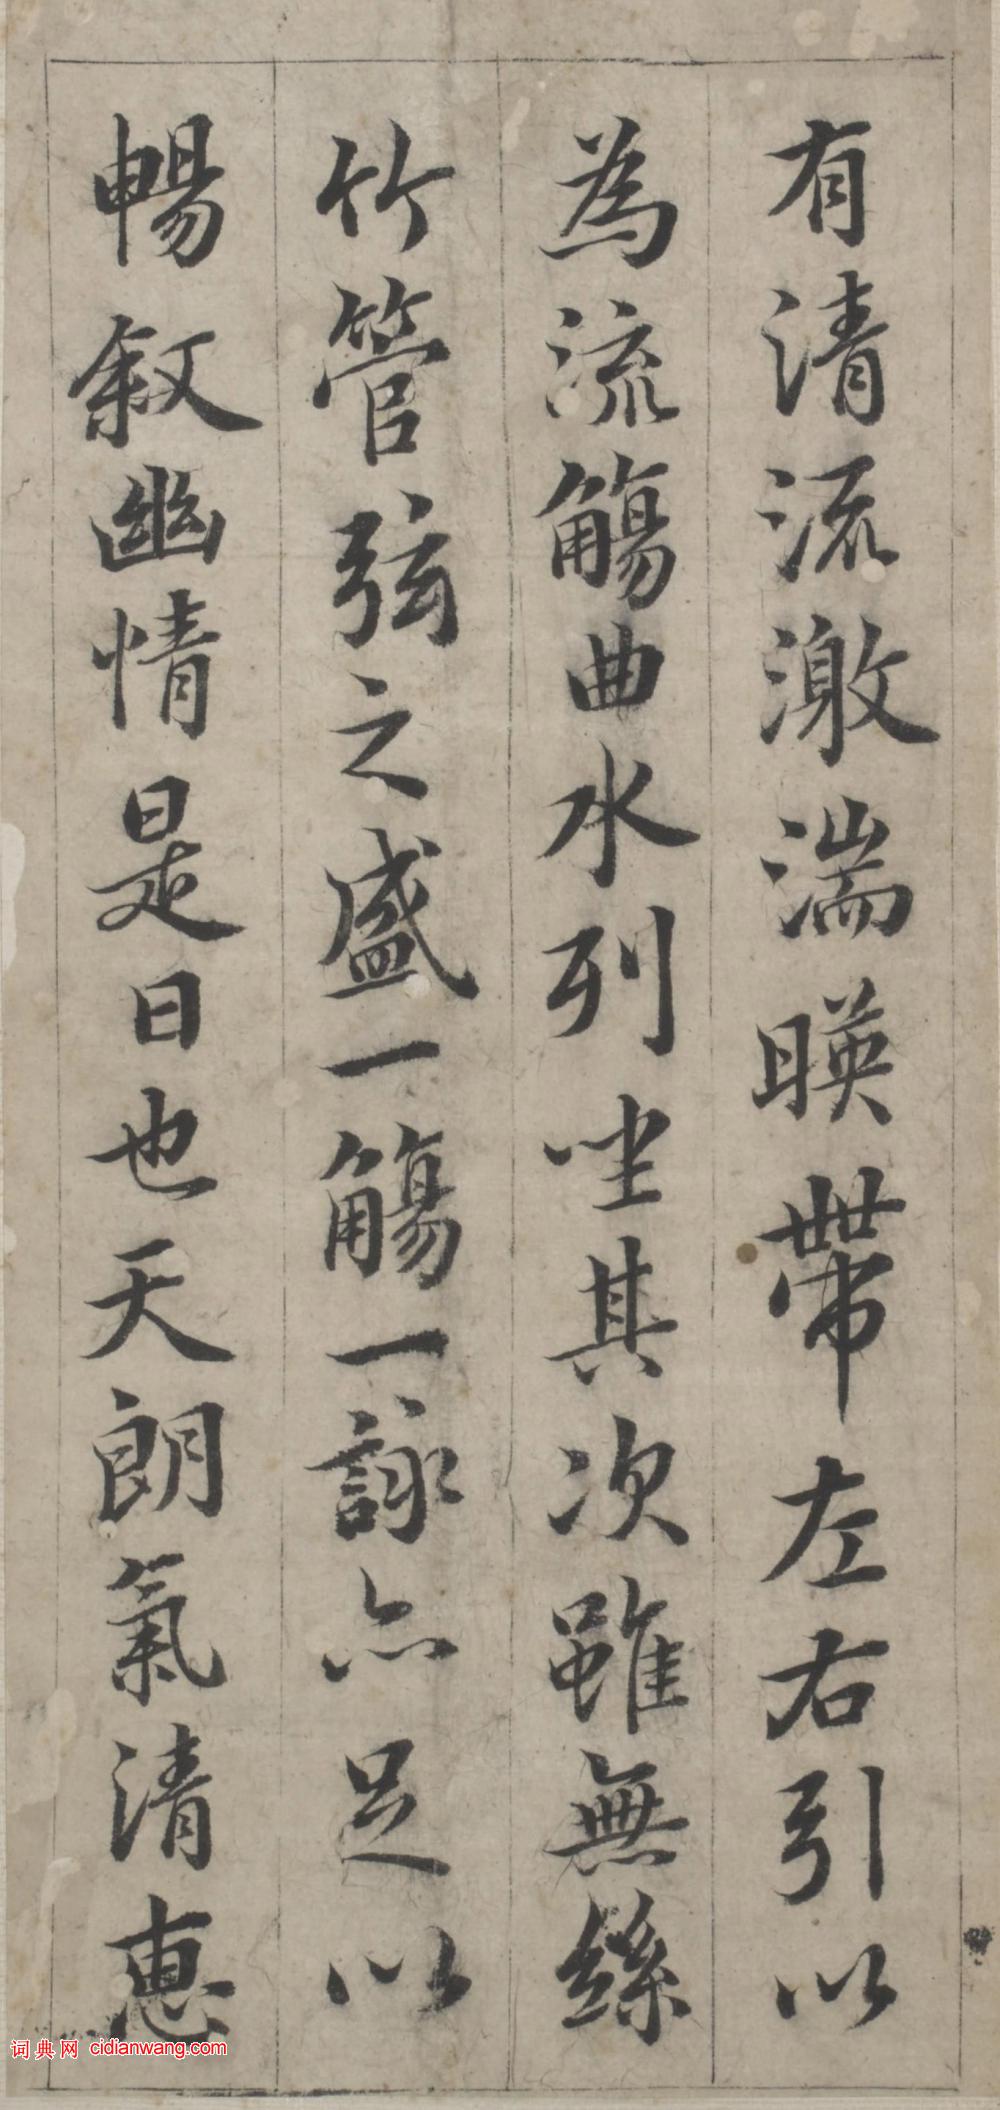 有清流激湍暎帶左右引以
為流觴曲水列坐其次雖無絲
竹管弦之盛一觴一詠亦足以
暢敘幽情是日也天朗氣清惠
词典网 cidianwang.com